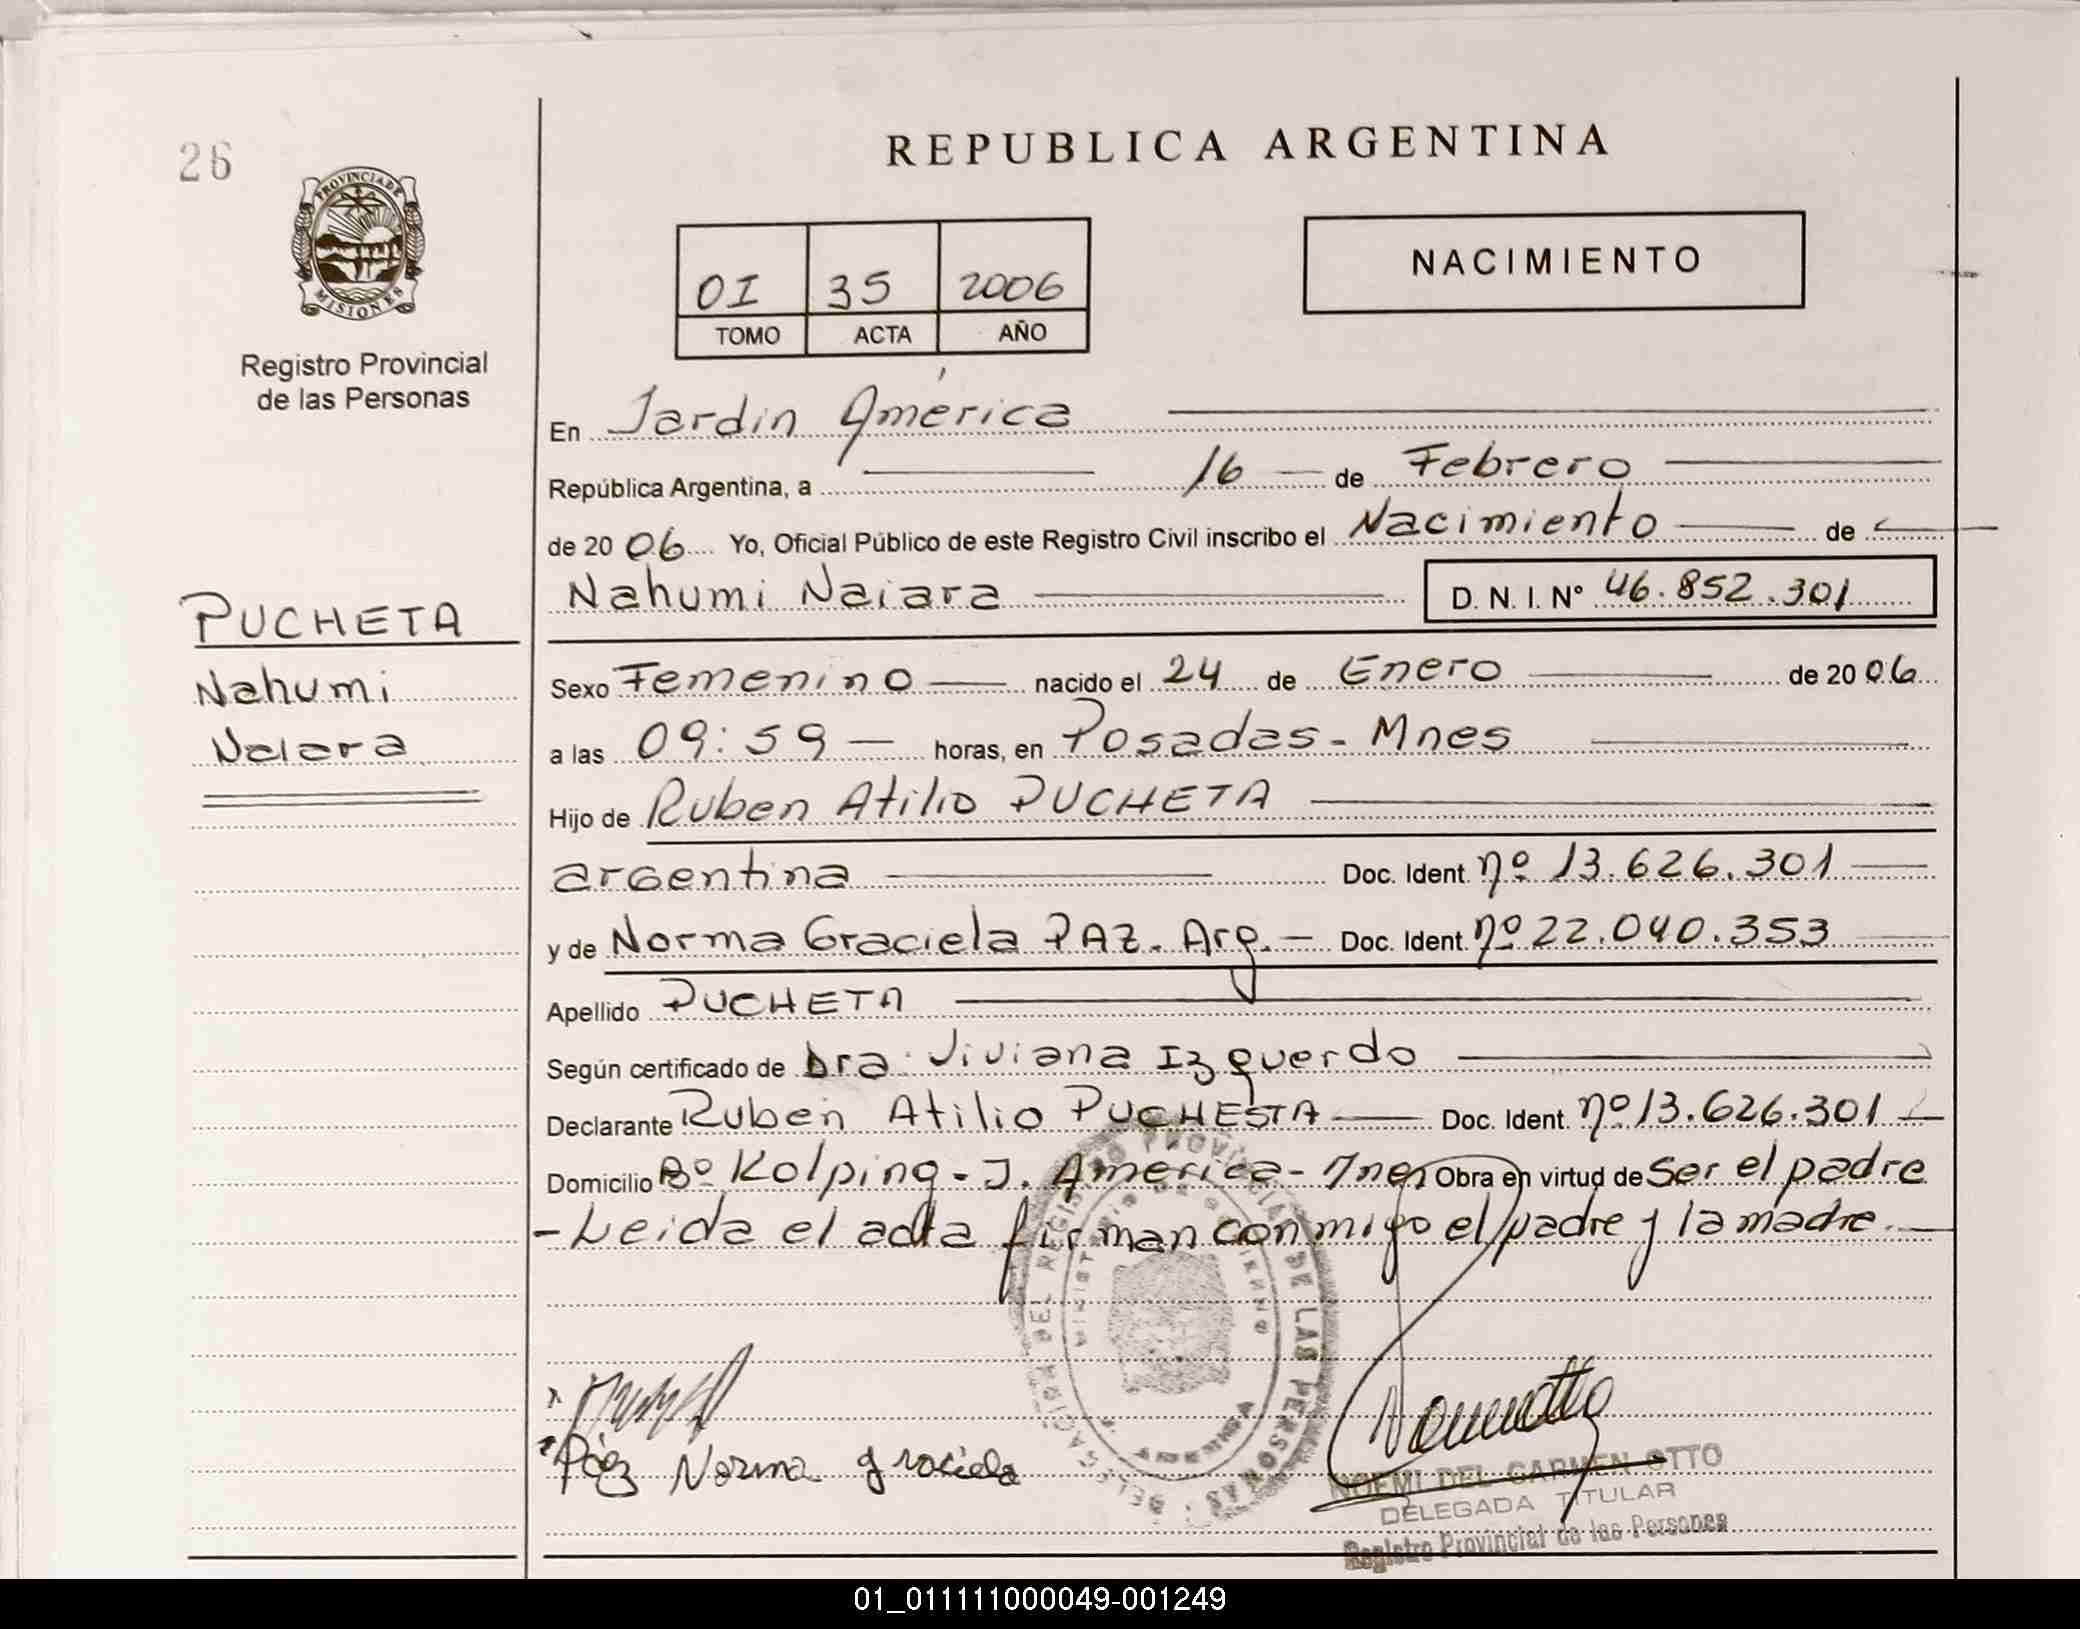 26
PROVINCIA DE
MISIONES
Registro Provincial
de las Personas
PUCHETA
Nahumi
Naiara
REPUBLICA ARGENTINA
OI 35 2006
TOMO ACTA AÑO
NACIMIENTO
En Jardin América
República Argentina, a 16 de Febrero
de 20 06 Yo, Oficial Público de este Registro Civil inscribo el Nacimiento de
Nahumi Naiara D. N. I. Nº 46.852.301
Sexo Femenino nacido el 24 de Enero de 20 06
a las 09:59 horas, en Posadas - Mnes
Hijo de Ruben Atilio PUCHETA
argentina Doc. Ident. nº 13.626.301
y de Norma Graciela PAZ. Arg. Doc. Ident. nº 22.040.353
Apellido PUCHETA
Según certificado de Dra. Viviana Izquerdo
Declarante Ruben Atilio PUCHESTA Doc. Ident. nº 13.626.301
Domicilio Bº Kolping - J. America - Obra en virtud de Ser el padre
- Leida el acta firman conmigo el padre y la madre.
DELEGACION DEL REGISTRO PROVINCIAL DE LAS PERSONAS
MINISTERIO DE GOBIERNO
Páz Norma graciela
NOEMI DEL CARMEN OTTO
DELEGADA TITULAR
Registro Provincial de las Personas
01_011111000049-001249